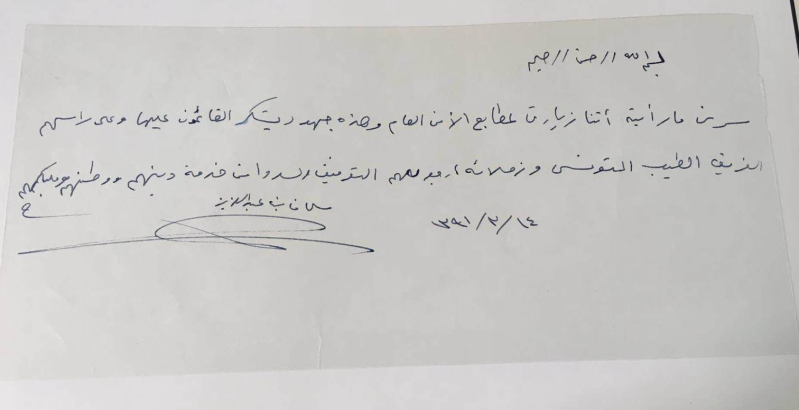 بسم الله الرحمن الرحيم
سرني ما رأيته أثناء زيارتي لمطابع الأمن العام وهذه جهود يشكر القائمون عليها وعلى رأسهم
الفريق الطيب التونسي وزملائه أرجو لهم التوفيق والسداد في خدمة دينهم ووطنهم ومليكهم
سلمان بن عبدالعزيز
١٤/٣/١٣٩١